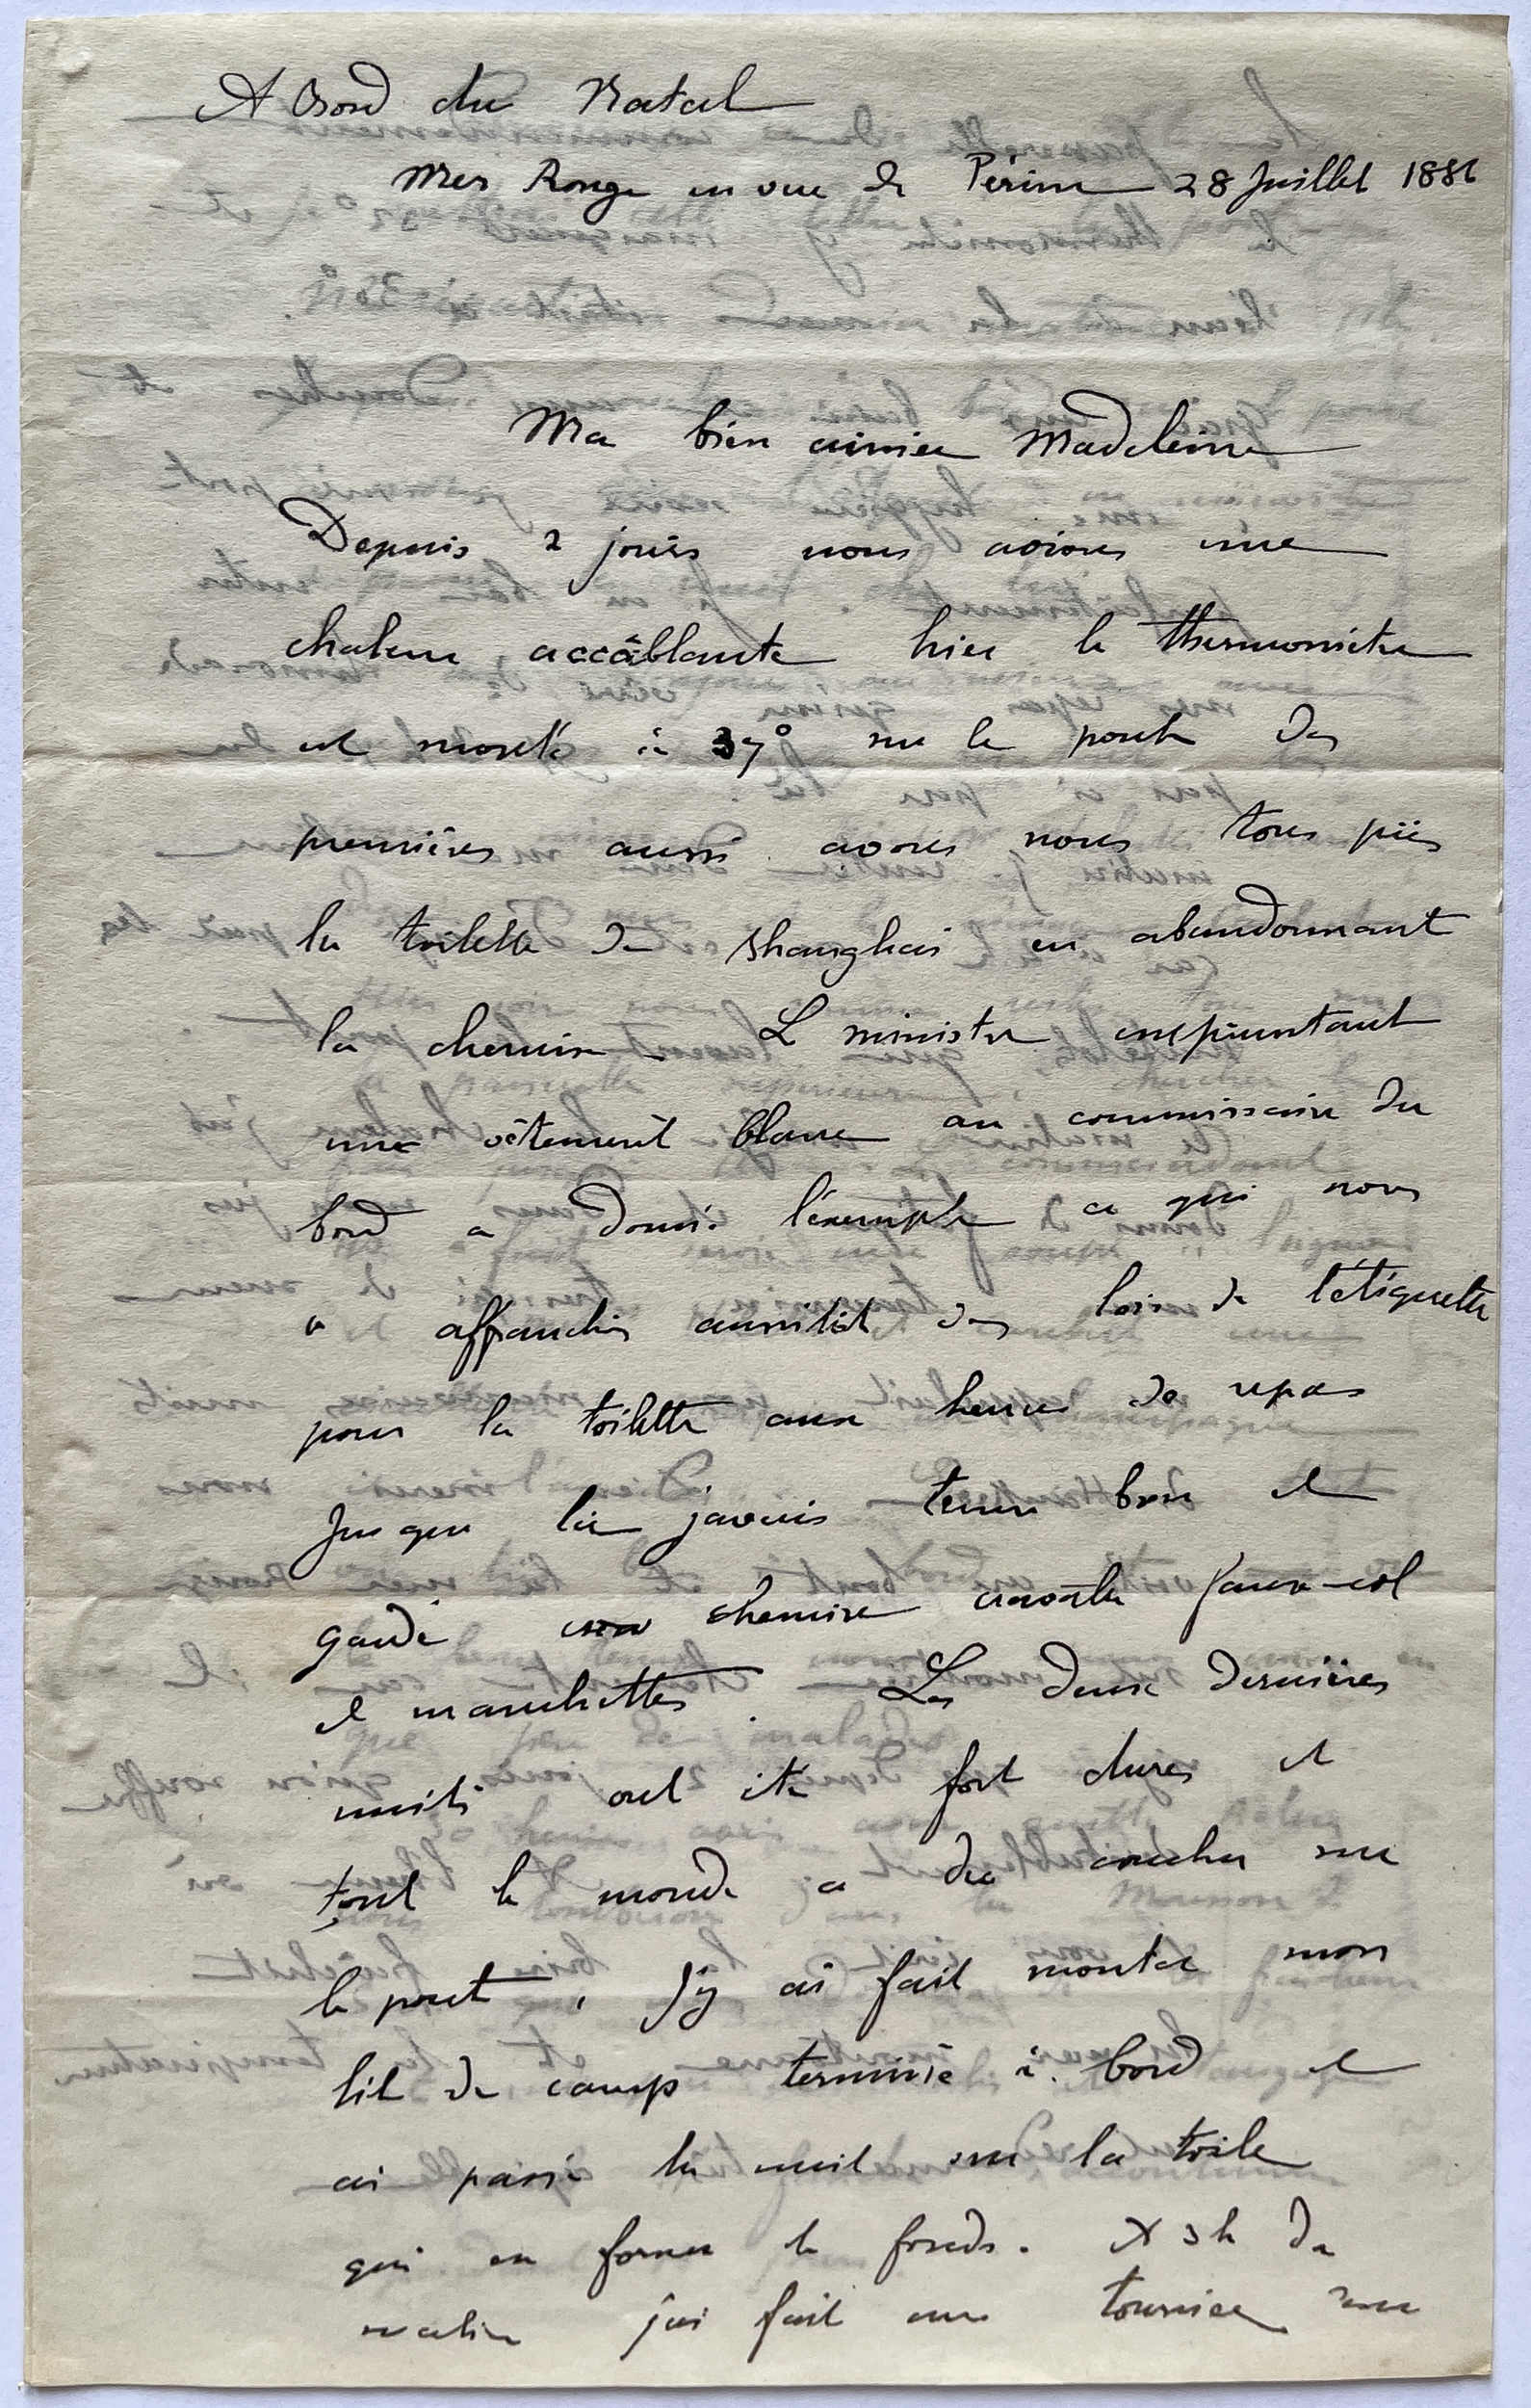 A Bord du Natal
Mer Rouge en vue de Périm 28 Juillet 1886
Ma bien aimée Madeleine
Depuis 2 jours nous avions une
chaleur accâblante hier le thermomètre
est monté à 37° sur le pont des
premières aussi avons nous tous pris
la toilette de Shanghai en abandonnant
la chemise. Le ministre empruntant
une vêtement blanc au commissaire du
bord a donné l'exemple ce qui nous
a affranchis aussitôt des lois de l'étiquette
pour la toilette aux heures de repas
Jusque là j'avais tenu bon et
gardé chemise cravate faux-col
et manchettes. Les deux dernières
nuits ont été fort dures et
tout le monde a du coucher sur
le pont, j'y ai fait monter mon
lit de camp terminé à bord et
ai passé la nuit sur la toile
qui en forme le fonds. A 3h du
matin j'ai fait une tournée sur